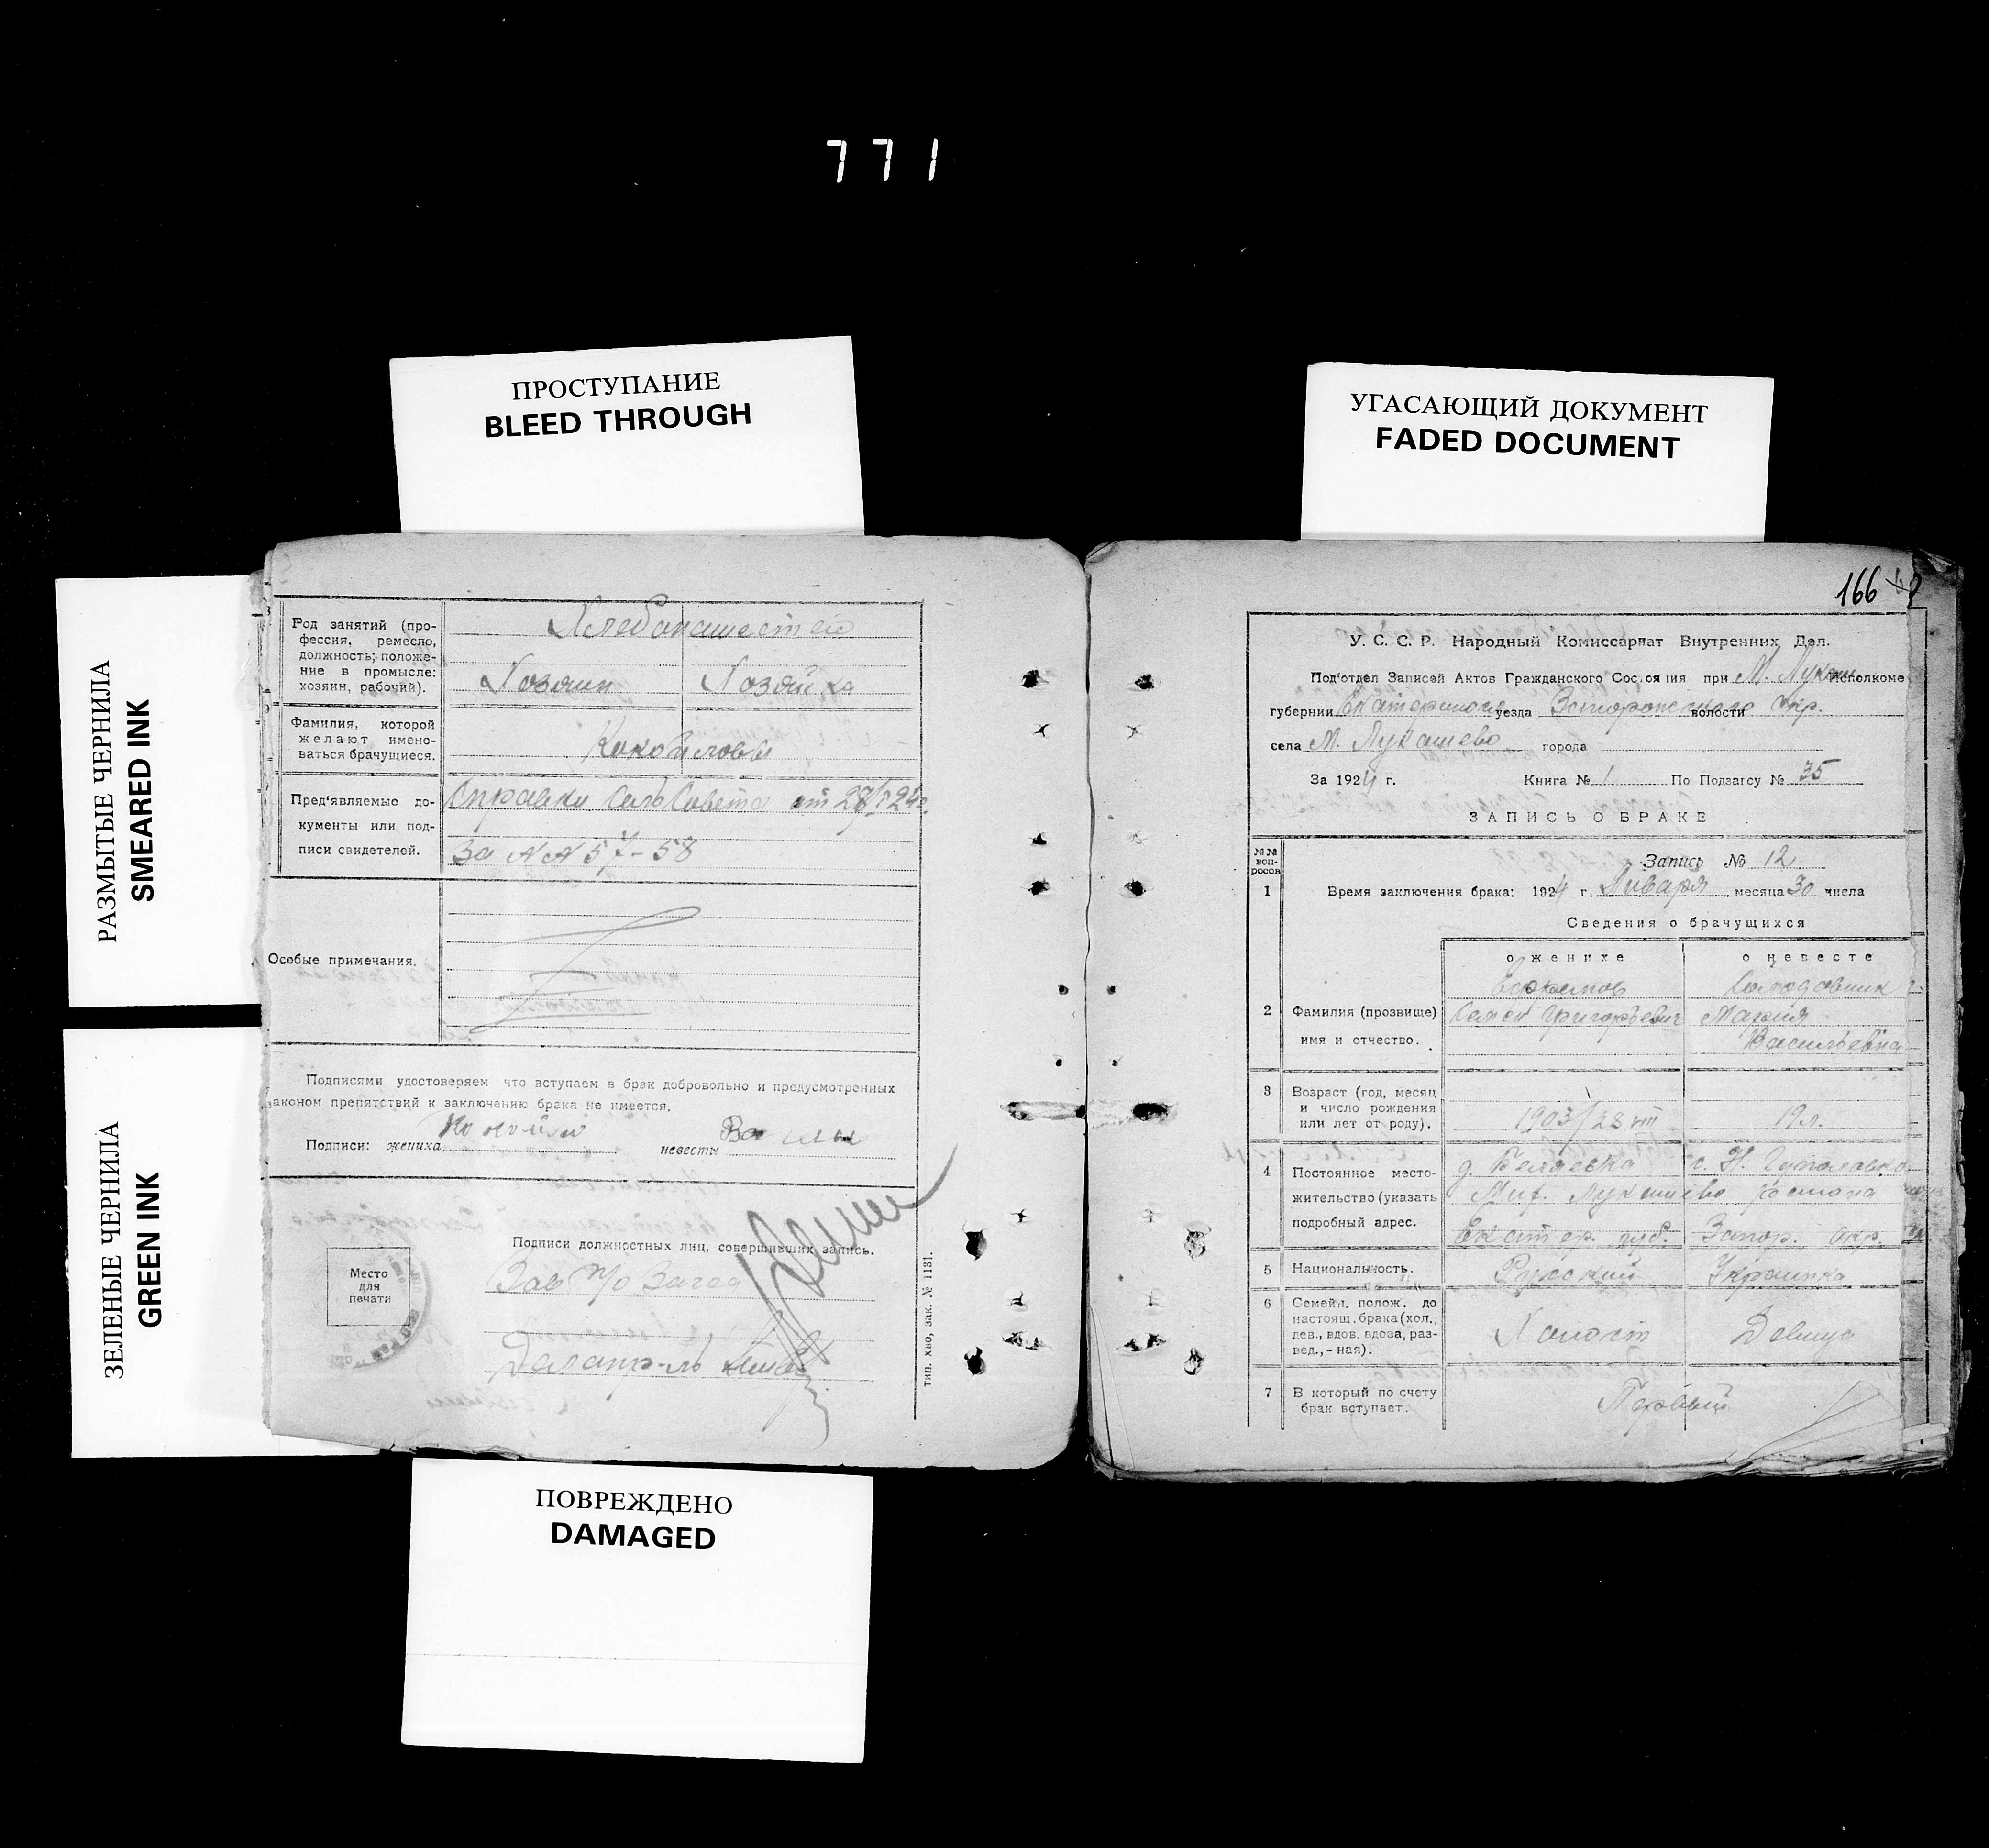 771
ПРОСТУПАНИЕ
BLEED THROUGH
УГАСАЮЩИЙ ДОКУМЕНТ
FADED DOCUMENT
РАЗМЫТЫЕ ЧЕРНИЛА
SMEARED INK
ЗЕЛЕНЫЕ ЧЕРНИЛА
GREEN INK
Род занятий (про-
фессия, ремесло,
должность; положе-
ние в промысле:
хозяин, рабочий).
Хозяин Хозяйка
Фамилия, которой
желают имено-
ваться брачущиеся.
Пред'являемые до-
кументы или под-
писи свидетелей.
Справки СельСовета от
за №№ 57-58
Особые примечания.
Подписями удостоверяем что вступаем в брак добровольно и предусмотренных
законом препятствий к заключению брака не имеется.
Подписи: жениха невесты
Подписи должностных лиц, совершивших запись.
Место
для
печати
тип. хво, зак. № 1131.
ПОВРЕЖДЕНО
DAMAGED
166
У. С. С. Р. Народный Комиссариат Внутренних Дел.
Под'отдел Записей Актов Гражданского Состояния при М. Исполкоме
губернии уезда волости Окр.
села М. Лукашево города
За 1924 г. Книга № 1 По Подзагсу № 35
ЗАПИСЬ О БРАКЕ
№№
воп-
росов
Запись № 12
1 Время заключения брака: 1924 г. Января месяца 30 числа
Сведения о брачущихся
о женихе о невесте
Ефремов
2 Фамилия (прозвище)
имя и отчество.
Семен Григорьевич Мария
Васильевна
3 Возраст (год, месяц
и число рождения
или лет от роду).
1903/28 19 л.
4 Постоянное место-
жительство (указать
подробный адрес.
д. Беляевка с. Н.
Лукашево района
Екатер. губ. Запор. Окр.
5 Национальность. Русский Украинка
6 Семейн. полож. до
настоящ. брака (хол.,
дев., вдов, вдова, раз-
вед., - ная).
Холост Девица
7 В который по счету
брак вступает.
Первый